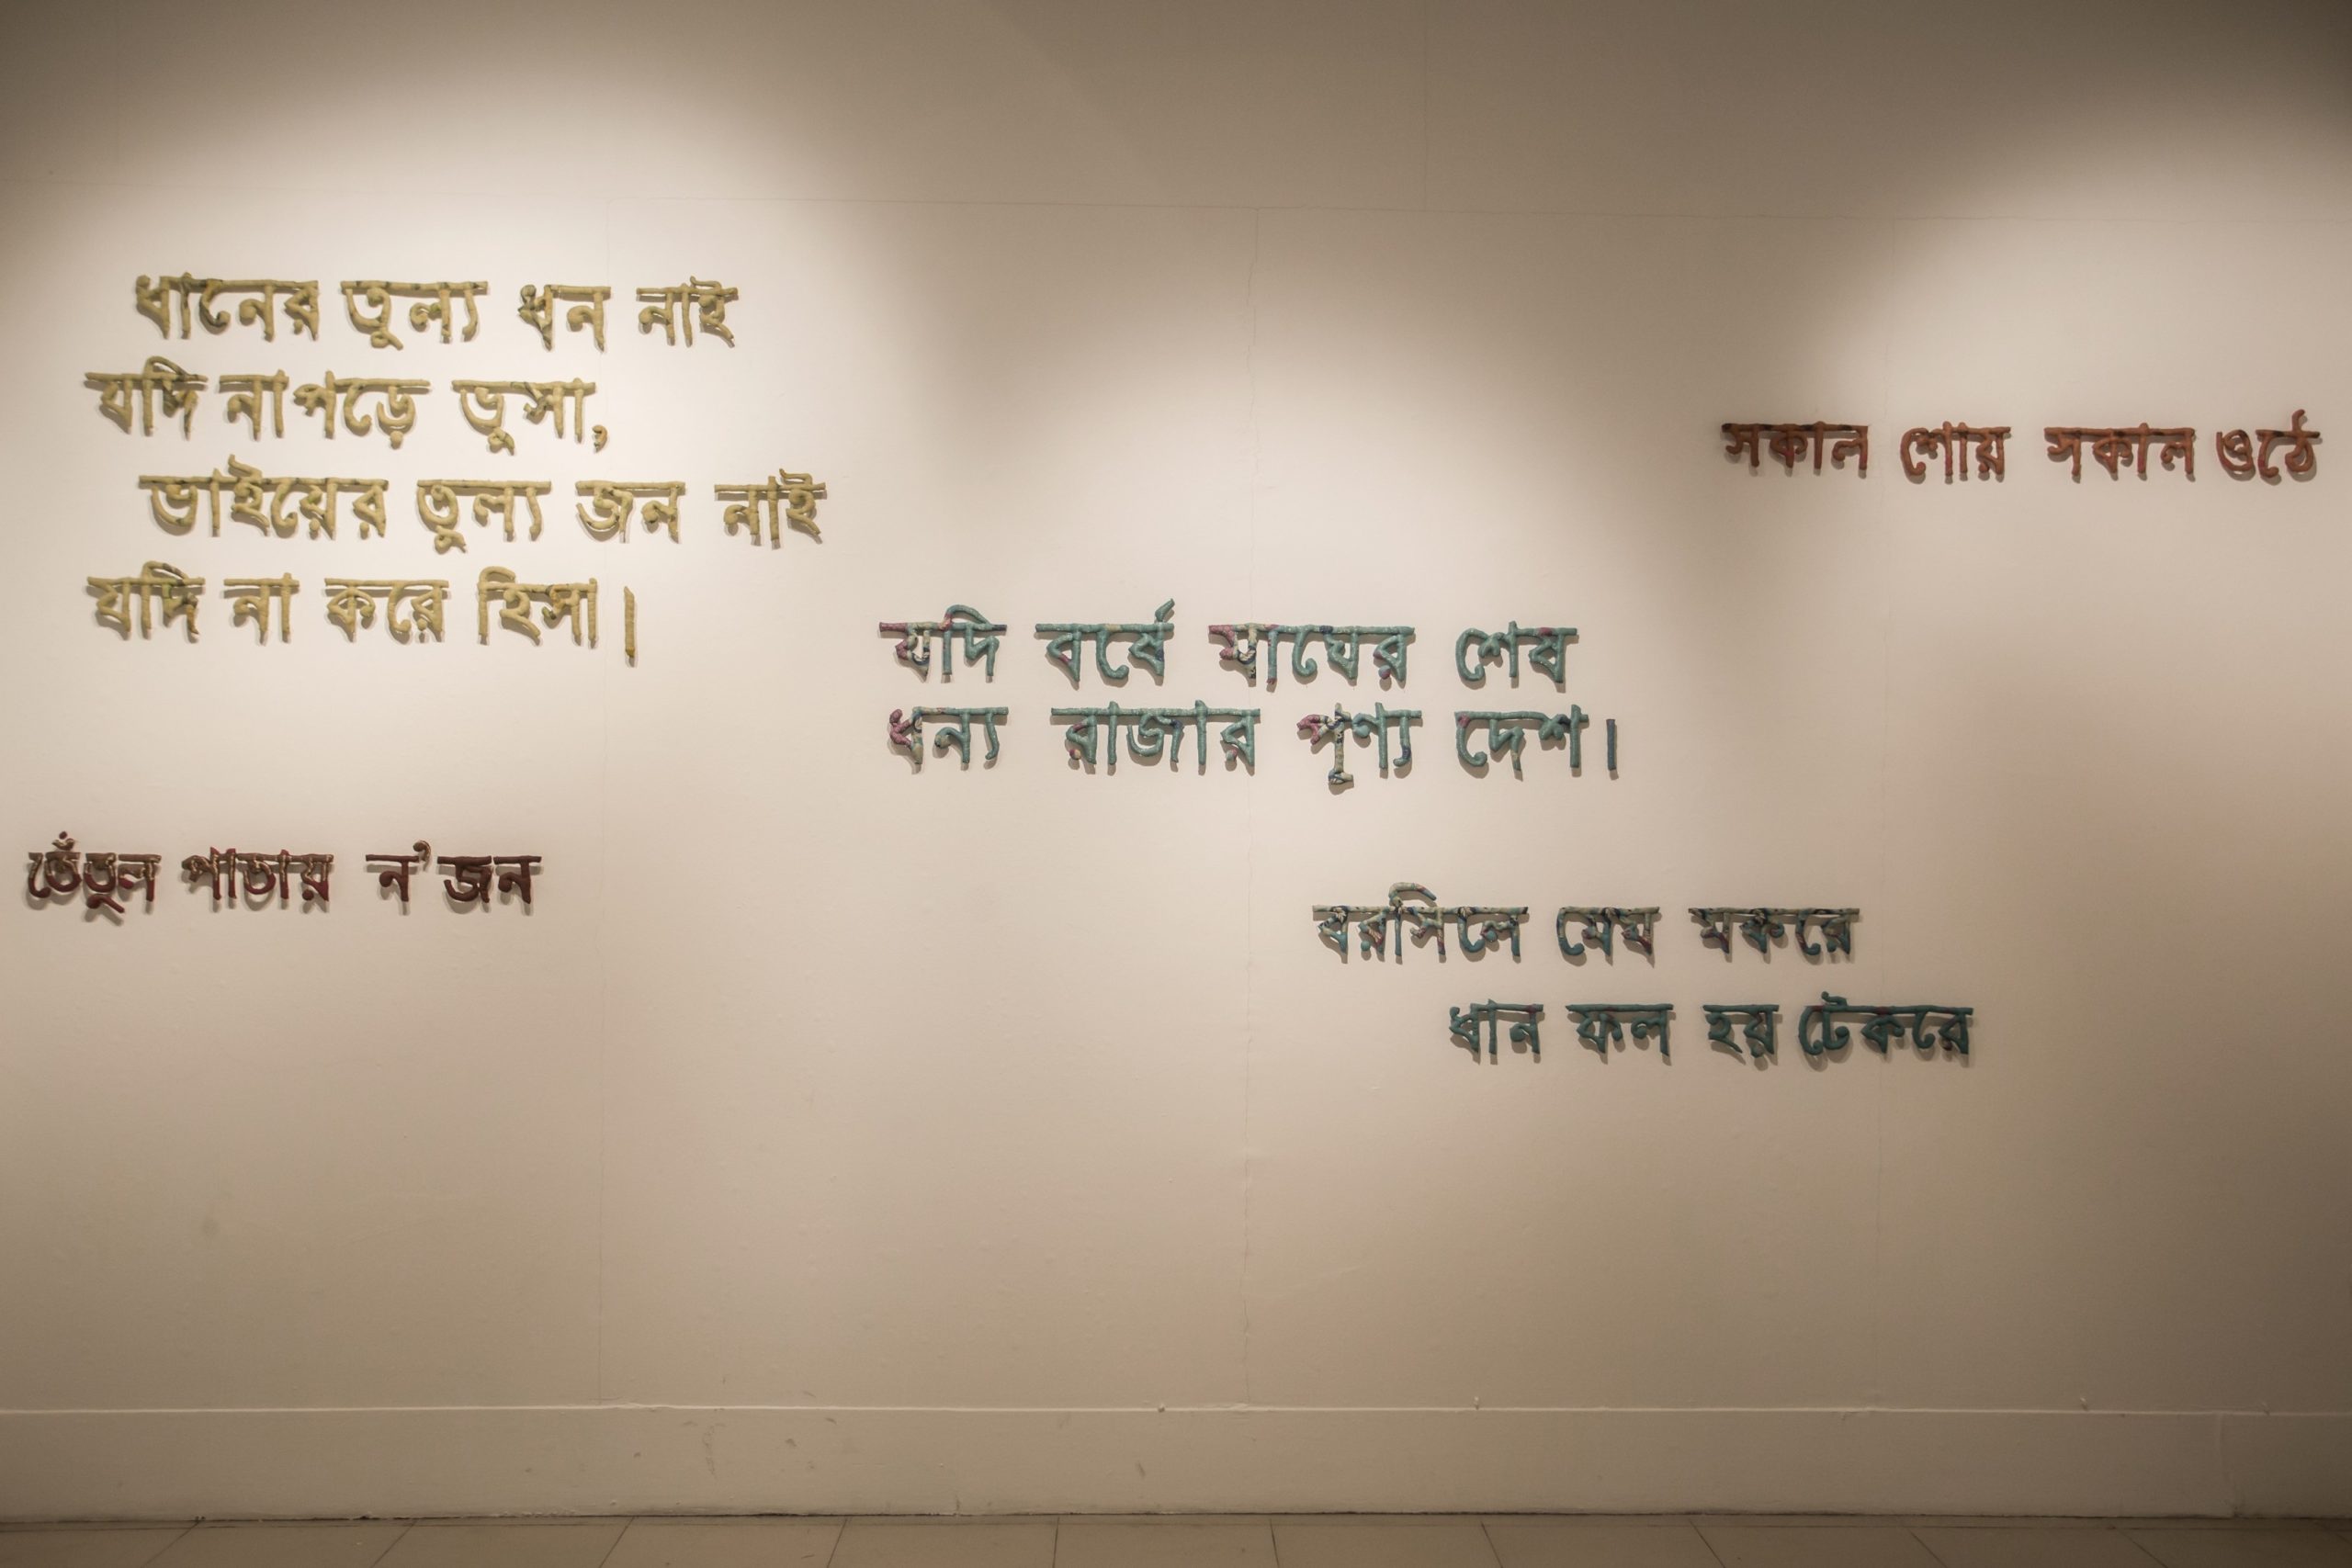 ধানের তুল্য ধন নাই
যদি না পড়ে ভুসা,
ভাইয়ের তুল্য জন নাই
যদি না করে হিসা।
সকাল শোয় সকাল ওঠে
যদি বর্ষে মাঘের শেষ
ধন্য রাজার পূণ্য দেশ।
তেঁতুল পাতায় ন'জন
বরসিলে মেঘ মকরে
ধান ফল হয় টেকরে